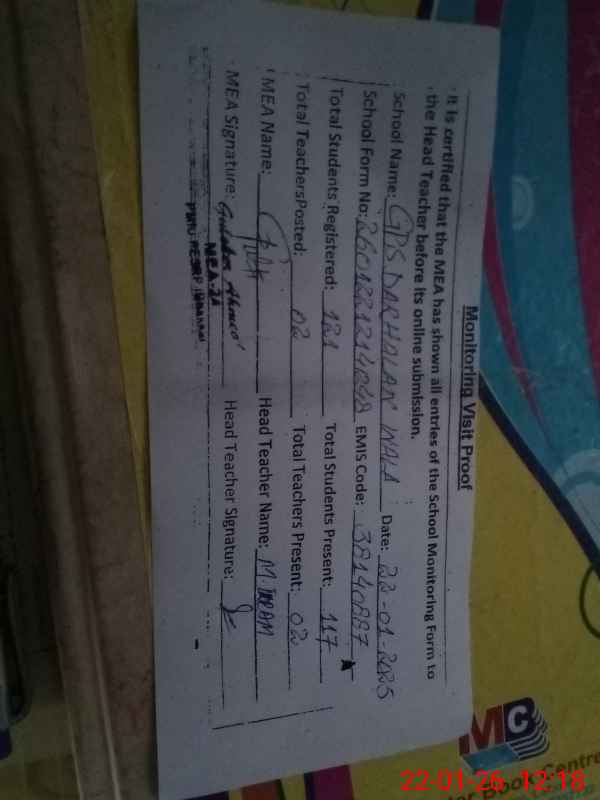 Monitoring Visit Proof
It is certified that the MEA has shown all entries of the School Monitoring Form to
the Head Teacher before its online submission.
School Name: GPS DARHALAN WALA Date: 22-01-2025
School Form No: EMIS Code: 38140887
Total Students Registered: 121 Total Students Present: 117
Total Teachers Posted: 02 Total Teachers Present: 02
MEA Name: Head Teacher Name: M. IKRAM
MEA Signature: Head Teacher Signature:
MEA-24
MC
Book Centre
22-01-26 12:18